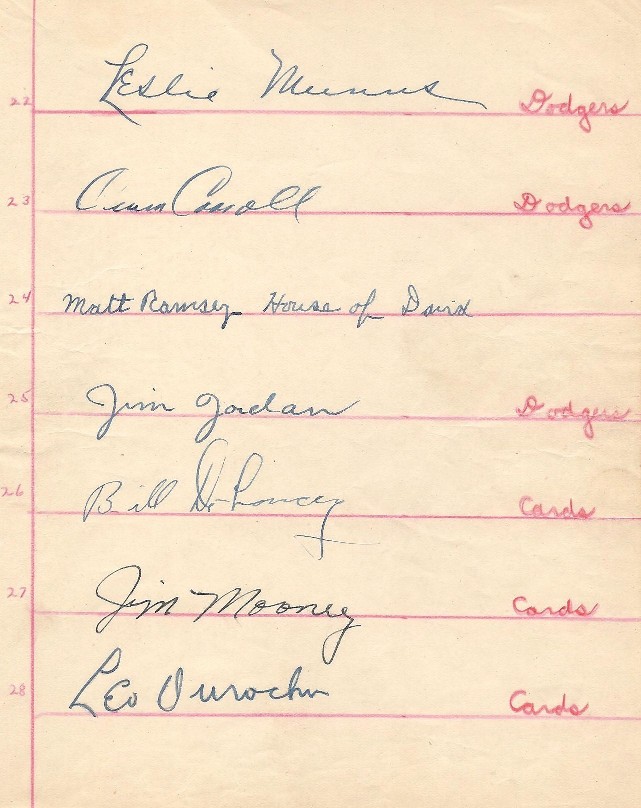 22 Leslie Munns Dodgers
23 Owen Carroll Dodgers
24 Matt Ramsey House of David
25 Jim Jordan Dodgers
26 Bill DeLancey Cards
27 Jim Mooney Cards
28 Leo Durocher Cards